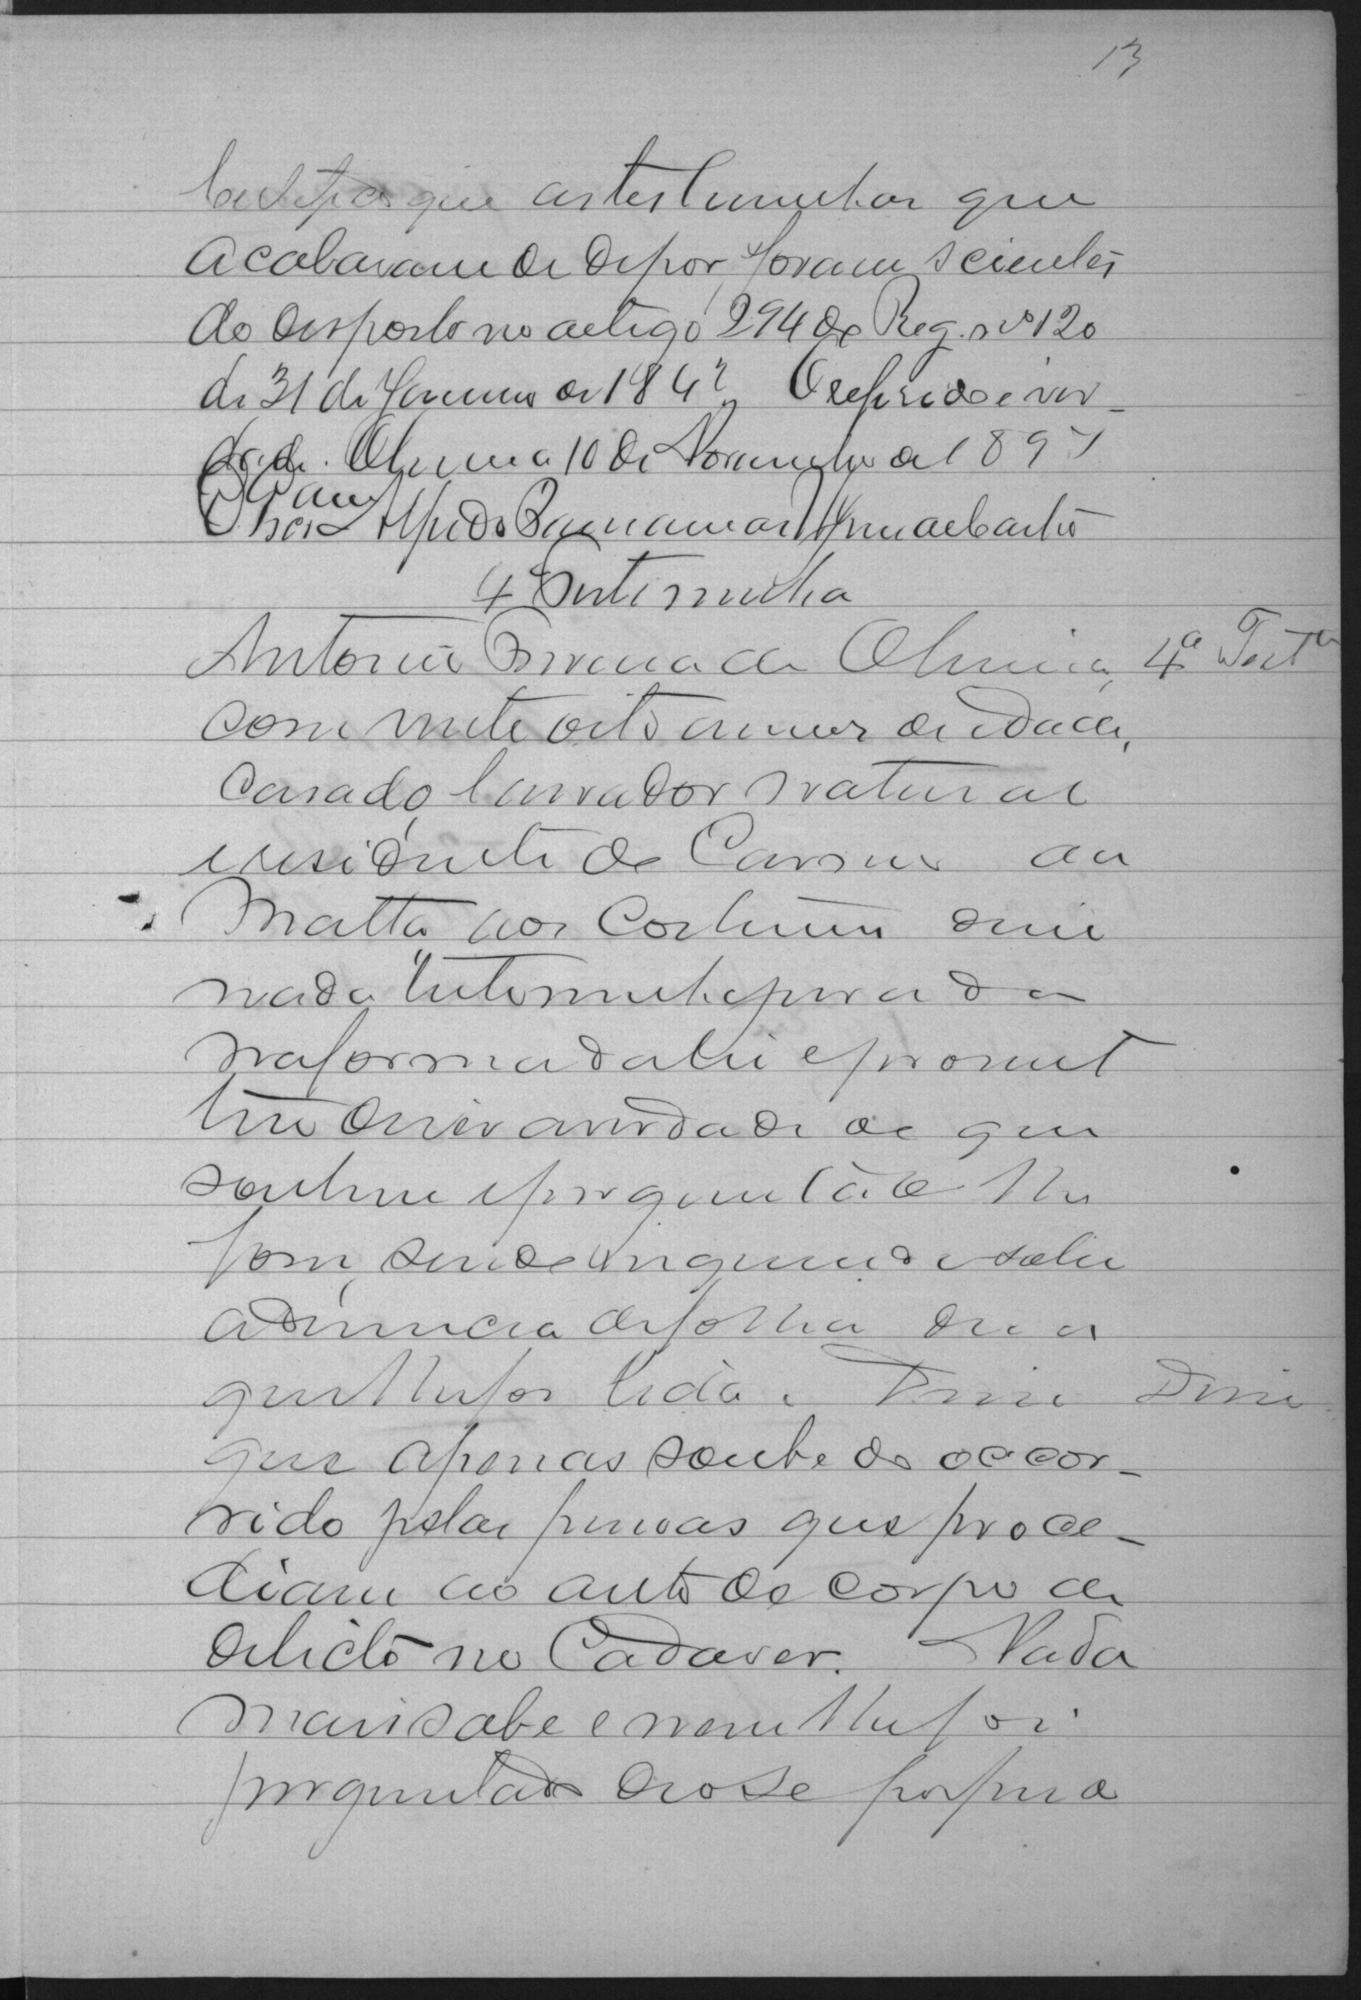 13
Certifico que as testemunhas que
acabavam de depor, foram scientes
do disposto no artigo 294 do Reg. nº 120
de 31 de Janeiro de 1842. O referido é ver-
dade. Oliveira 10 de Novembro de 1897
Escrivão Alfredo
4ª Testemunha
Antonio Pereira de Oliveira, 4ª Testª
com vinte oito annos de idade,
casado, lavrador natural
e residente do Carmo da
Matta aos costumes disse
nada. Testemunha jurada
na forma da lei e promet
teu dizer a verdade do que
soubesse e perguntado lhe
fosse, sendo inquerida sobre
a denuncia de folha dua
que lhe foi lida. Disse Disse
que apenas soube do occor-
rido pelas pessoas que proce-
diam ao auto de corpo de
delicto no Cadaver. Nada
mais sabe e nem lhe foi
perguntado deo se por findo